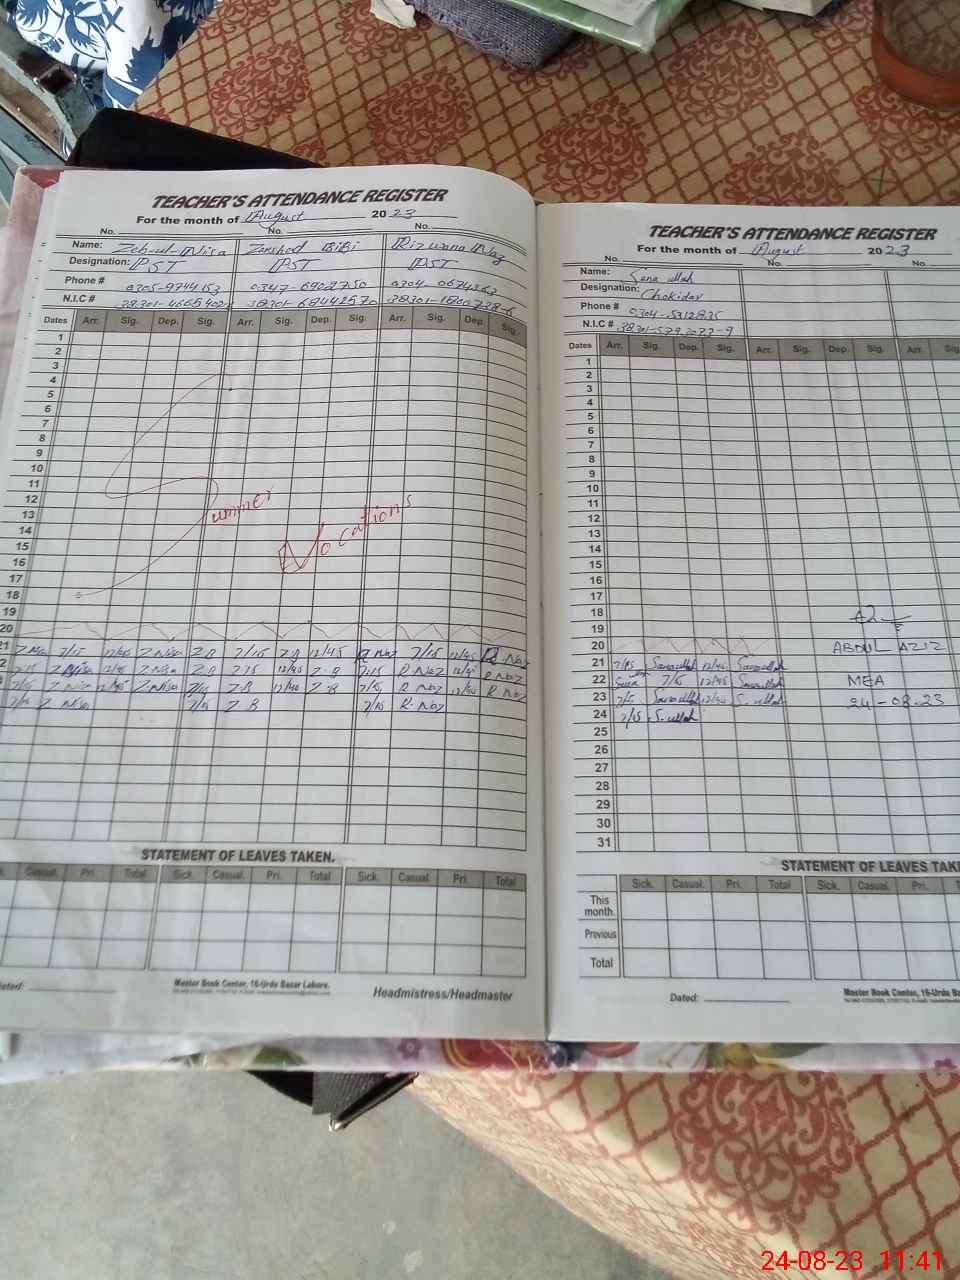 TEACHER'S ATTENDANCE REGISTER
For the month of August 2023
No. No. No.
Name: Zeb-ul-Nisa Zarshad BiBi Rizwana Naz
Designation: PST PST PST
Phone # 0305-9744153 0347-6902750 0304-0674263
N.I.C #
Dates Arr. Sig. Dep. Sig. Arr. Sig. Dep. Sig. Arr. Sig. Dep. Sig.
1
2
3
4
5
6
7
8
9
10
11
12
13
14
15
16
17
18
19
20
Summer Vocations
21 Z Nisa 7/15 12/45 Z Nisa Z.B 7/15 Z.B 12/45 R Naz 7/15 12/45 R. Naz
7/15 12/45 Z Nisa Z.B 7:15 12/40 Z.B 7:15 R Naz R Naz
7/15 Z Nisa 12/45 Z Nisa 7/15 Z.B 12/40 Z.B 7/15 R Naz R Naz
Z Nisa 7/15 Z.B 7/15 R. Naz
STATEMENT OF LEAVES TAKEN.
Casual. Pri. Total Sick. Casual. Pri. Total Sick. Casual. Pri. Total
Master Book Center, 16-Urdu Bazar Lahore.
Headmistress/Headmaster
TEACHER'S ATTENDANCE REGISTER
For the month of August 2023
No. No. No
Name: Sana ullah
Designation: Chokidar
Phone # 0304-5312835
N.I.C # 38301-5793073-9
Dates Arr. Sig. Dep. Sig. Arr. Sig. Dep. Sig. Arr. Sig
1
2
3
4
5
6
7
8
9
10
11
12
13
14
15
16
17
18
19
20 ABDUL AZIZ
21 7/15 Sanaullah 12/45 Sanaullah
22 7/15 12/45 Sanaullah MEA
23 7/15 Sanaullah 12/40 S.ullah 24-08-23
24 7/15 S.ullah
25
26
27
28
29
30
31
STATEMENT OF LEAVES TAKE
Sick. Casual. Pri. Total Sick. Casual. Pri.
This month.
Previous
Total
Dated:
Master Book Center, 16-Urdu Ba
24-08-23 11:41